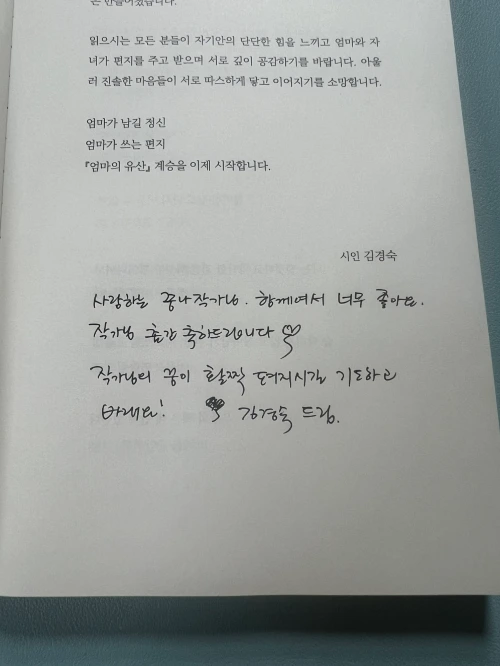 는 만들어졌습니다.
읽으시는 모든 분들이 자기안의 단단한 힘을 느끼고 엄마와 자
녀가 편지를 주고 받으며 서로 깊이 공감하기를 바랍니다. 아울
러 진솔한 마음들이 서로 따스하게 닿고 이어지기를 소망합니다.
엄마가 남길 정신
엄마가 쓰는 편지
『엄마의 유산』 계승을 이제 시작합니다.
시인 김경숙
사랑하는 꿈나작가님. 함께여서 너무 좋아요.
작가님 출간 축하드립니다♡
작가님의 꿈이 활짝 펴지시길 기도하고
바래요! 김경숙 드림.